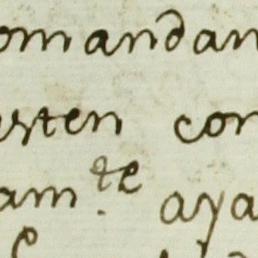 omandan
esten con
am.te aya